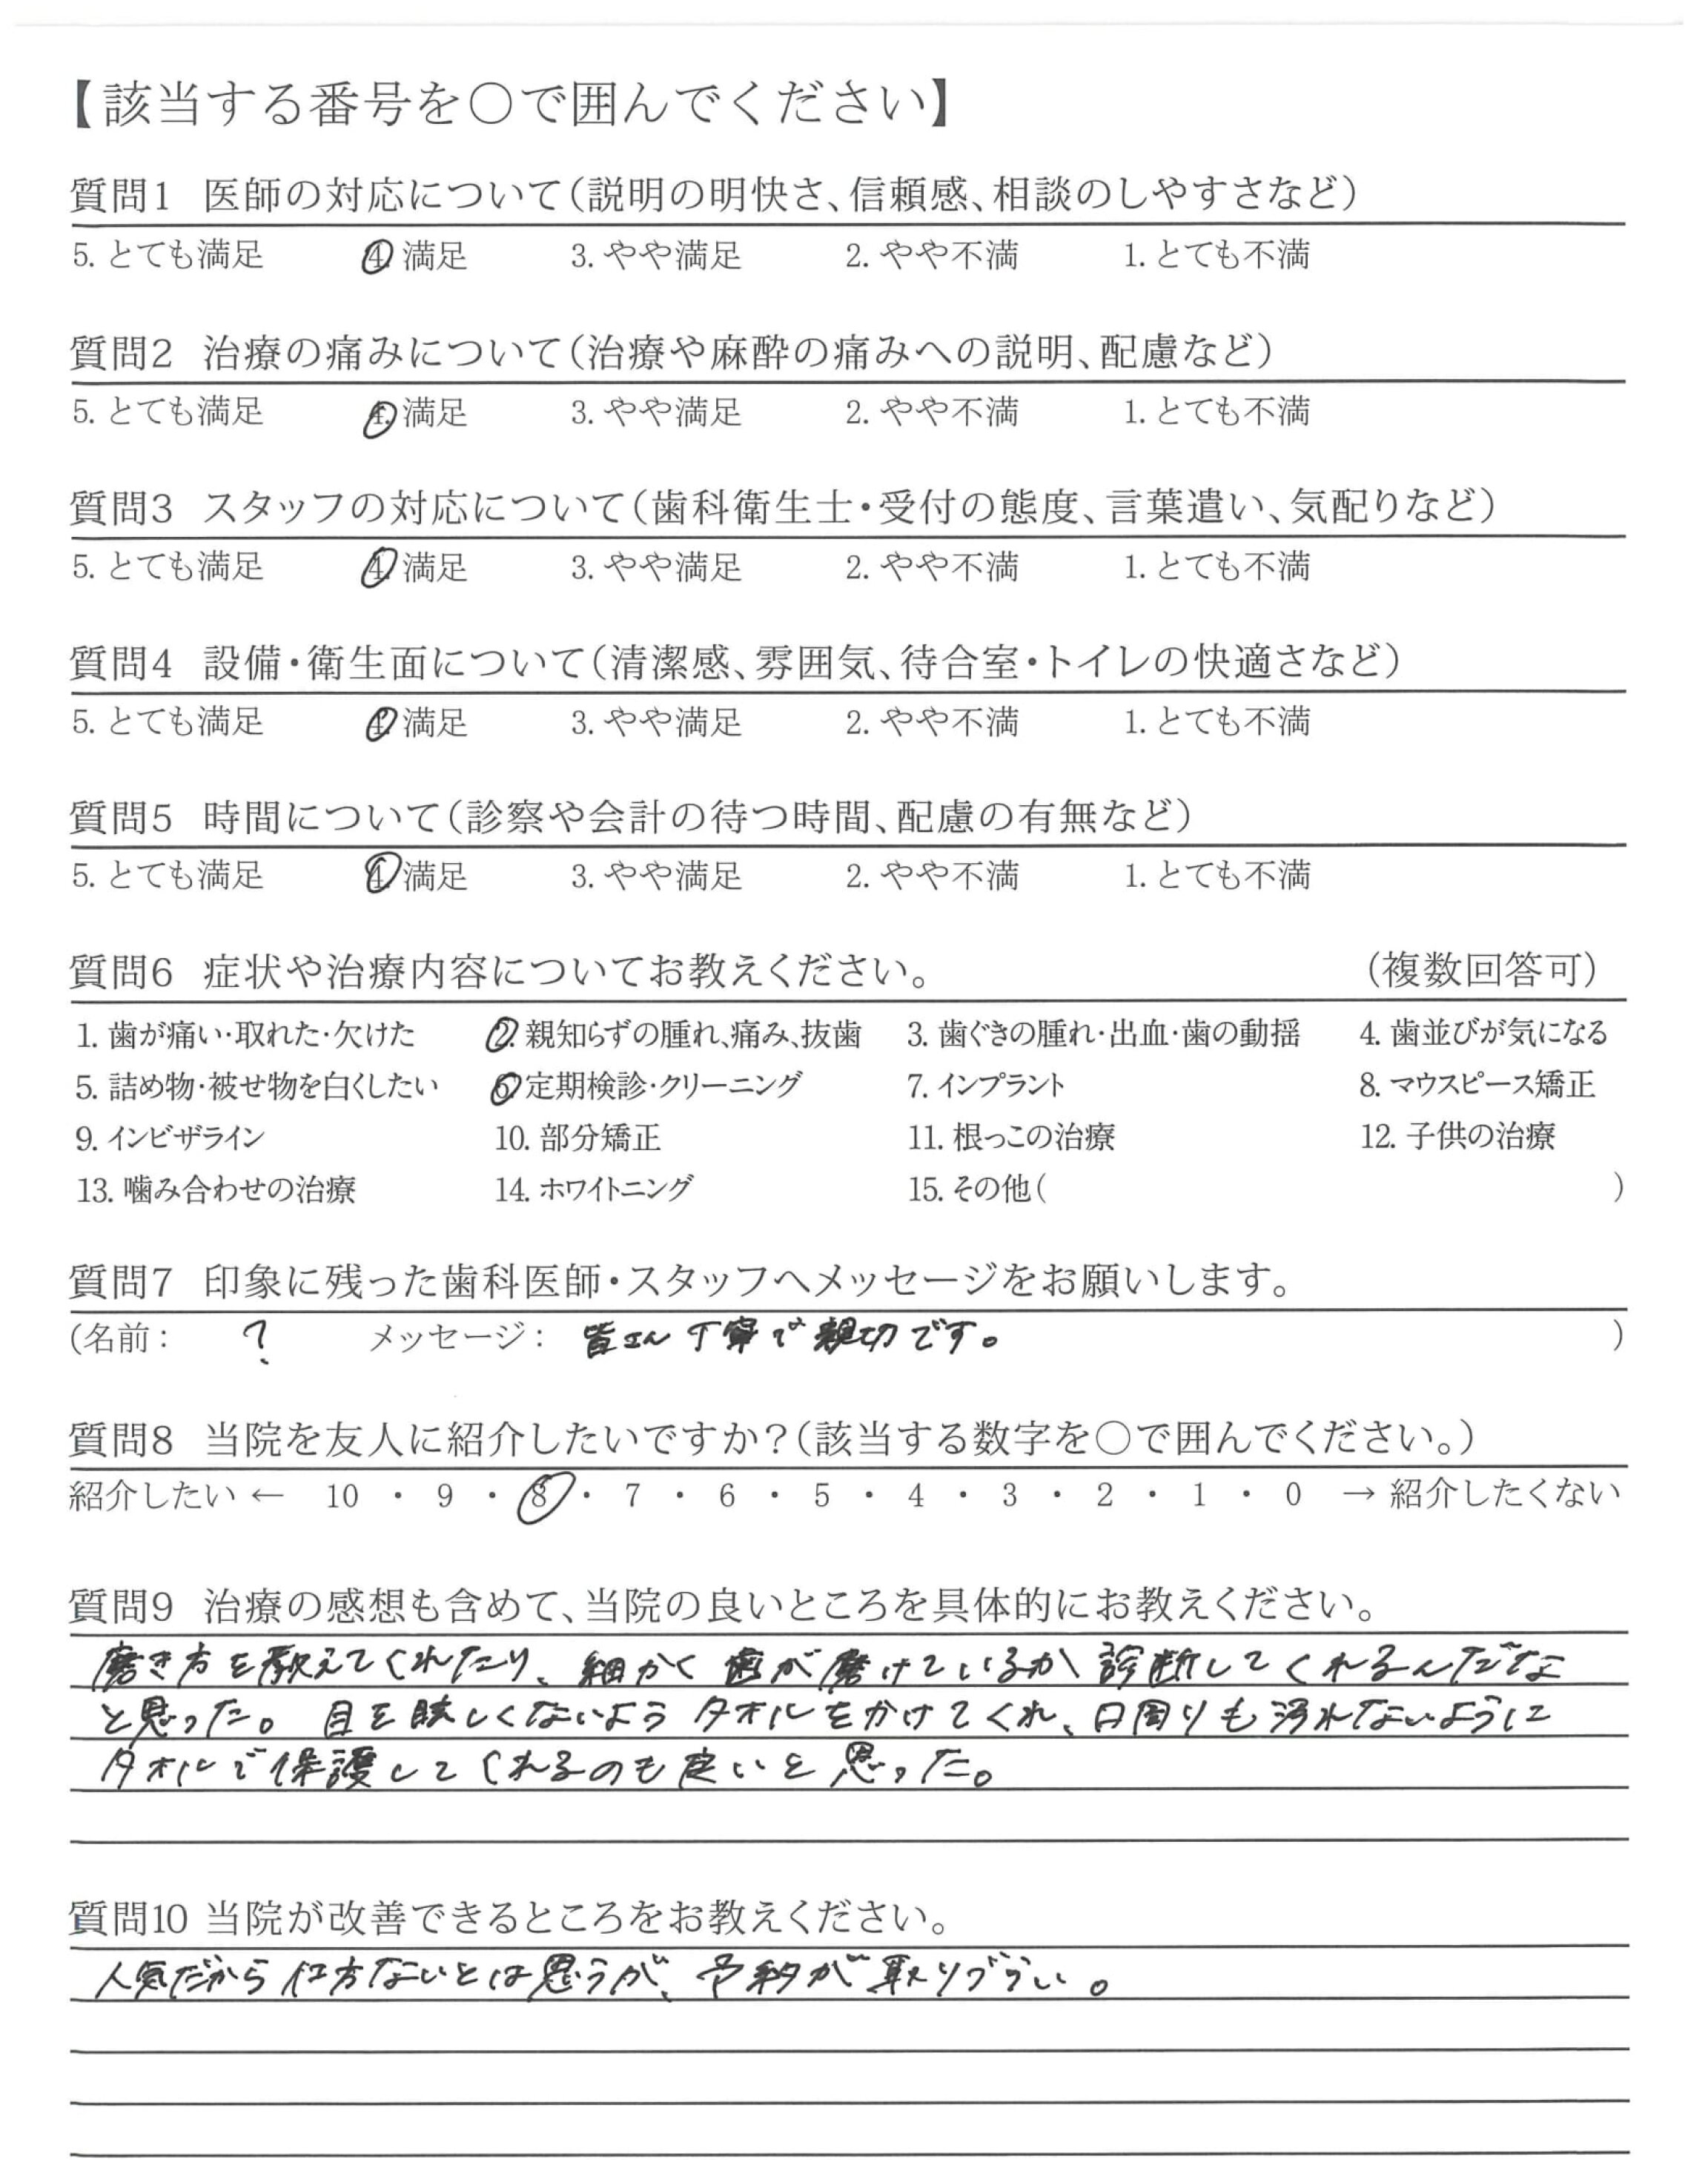 【該当する番号を〇で囲んでください】
質問1 医師の対応について(説明の明快さ、信頼感、相談のしやすさなど)
5. とても満足 4. 満足 3. やや満足 2. やや不満 1. とても不満
質問2 治療の痛みについて(治療や麻酔の痛みへの説明、配慮など)
5. とても満足 4. 満足 3. やや満足 2. やや不満 1. とても不満
質問3 スタッフの対応について(歯科衛生士・受付の態度、言葉遣い、気配りなど)
5. とても満足 4. 満足 3. やや満足 2. やや不満 1. とても不満
質問4 設備・衛生面について(清潔感、雰囲気、待合室・トイレの快適さなど)
5. とても満足 4. 満足 3. やや満足 2. やや不満 1. とても不満
質問5 時間について(診察や会計の待つ時間、配慮の有無など)
5. とても満足 4. 満足 3. やや満足 2. やや不満 1. とても不満
質問6 症状や治療内容についてお教えください。 (複数回答可)
1. 歯が痛い・取れた・欠けた 2. 親知らずの腫れ、痛み、抜歯 3. 歯ぐきの腫れ・出血・歯の動揺 4. 歯並びが気になる
5. 詰め物・被せ物を白くしたい 6. 定期検診・クリーニング 7. インプラント 8. マウスピース矯正
9. インビザライン 10. 部分矯正 11. 根っこの治療 12. 子供の治療
13. 噛み合わせの治療 14. ホワイトニング 15. その他( )
質問7 印象に残った歯科医師・スタッフへメッセージをお願いします。
(名前: ? メッセージ: 皆さん丁寧で親切です。 )
質問8 当院を友人に紹介したいですか?(該当する数字を〇で囲んでください。)
紹介したい ← 10 ・ 9 ・ 8 ・ 7 ・ 6 ・ 5 ・ 4 ・ 3 ・ 2 ・ 1 ・ 0 → 紹介したくない
質問9 治療の感想も含めて、当院の良いところを具体的にお教えください。
磨き方を教えてくれたり、細かく歯が磨けているか診断してくれるんだなな
と思った。目を眩しくないようタオルをかけてくれ、口周りも汚れないように
タオルで保護してくれるのも良いと思った。
質問10 当院が改善できるところをお教えください。
人気だから仕方ないとは思うが、予約が取りづらい。